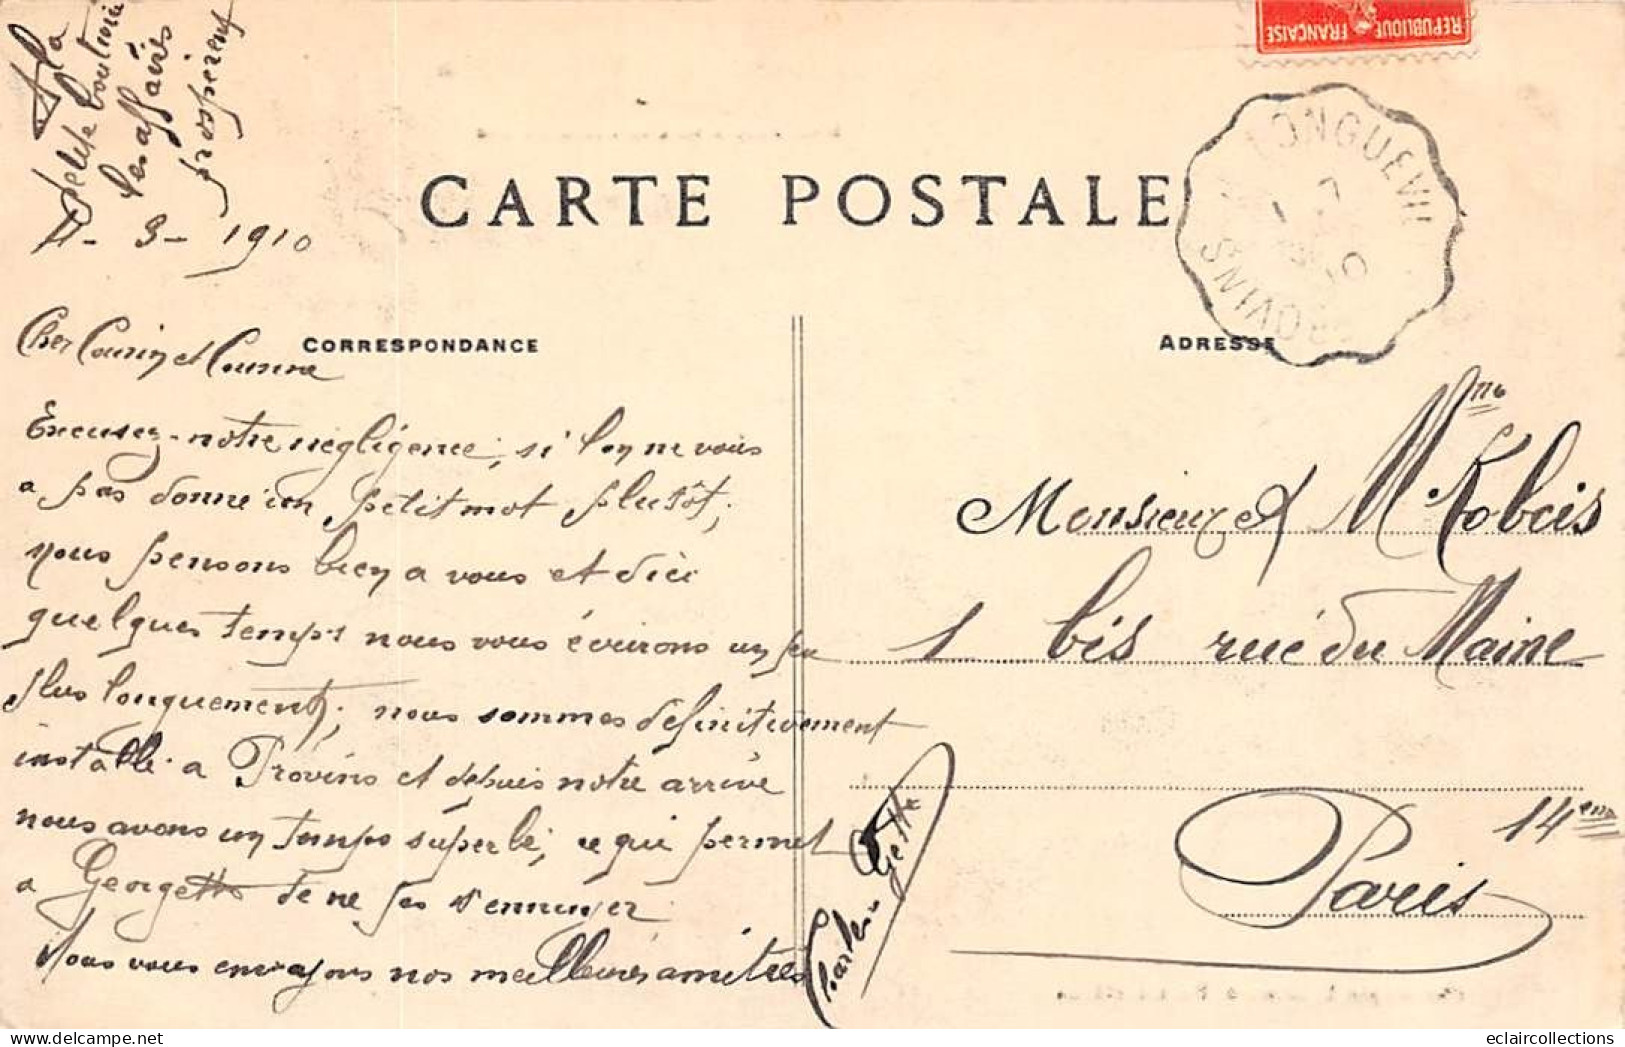 A la
petite boutique
les affaires
prosperent
REPUBLIQUE FRANÇAISE
CARTE POSTALE
LONGUEVIL
PROVINS
11 - 3 - 1910
CORRESPONDANCE
ADRESSE
Cher Cousin et Cousine
Excusez-notre négligence, si l'on ne vous
a pas donné un petit mot plutôt,
nous pensons bien a vous et d'ici
quelques temps nous vous écrirons un peu
plus longuement, nous sommes définitivement
installé a Provins et depuis notre arrivé
nous avons un temps superbe, ce qui permet
a Georgette de ne pas s'ennuyer
Nous vous envoyons nos meilleures amitiés
Charles Gette
Monsieur et Mme Robcis
1 bis rue du Maine
14eme
Paris
eclaircollections
© delcampe.net